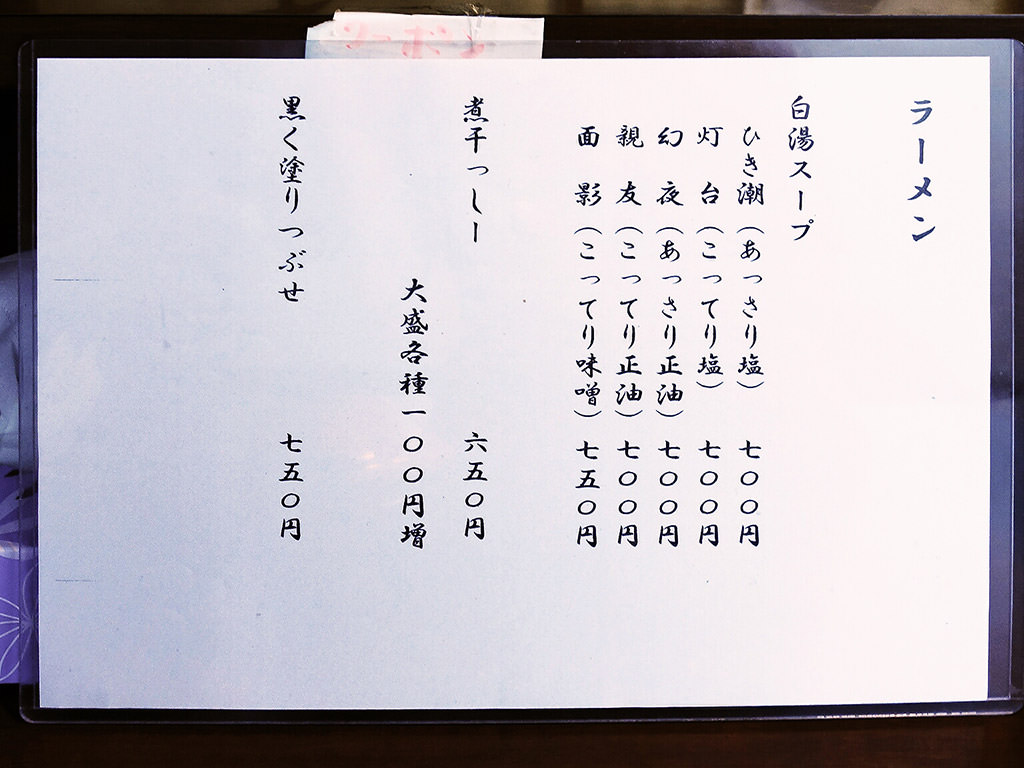 ラーメン
白湯スープ
ひき潮（あっさり塩）七〇〇円
灯台（こってり塩）七〇〇円
幻夜（あっさり正油）七〇〇円
親友（こってり正油）七〇〇円
面影（こってり味噌）七五〇円
煮干っしー 六五〇円
大盛各種一〇〇円増
黒く塗りつぶせ 七五〇円